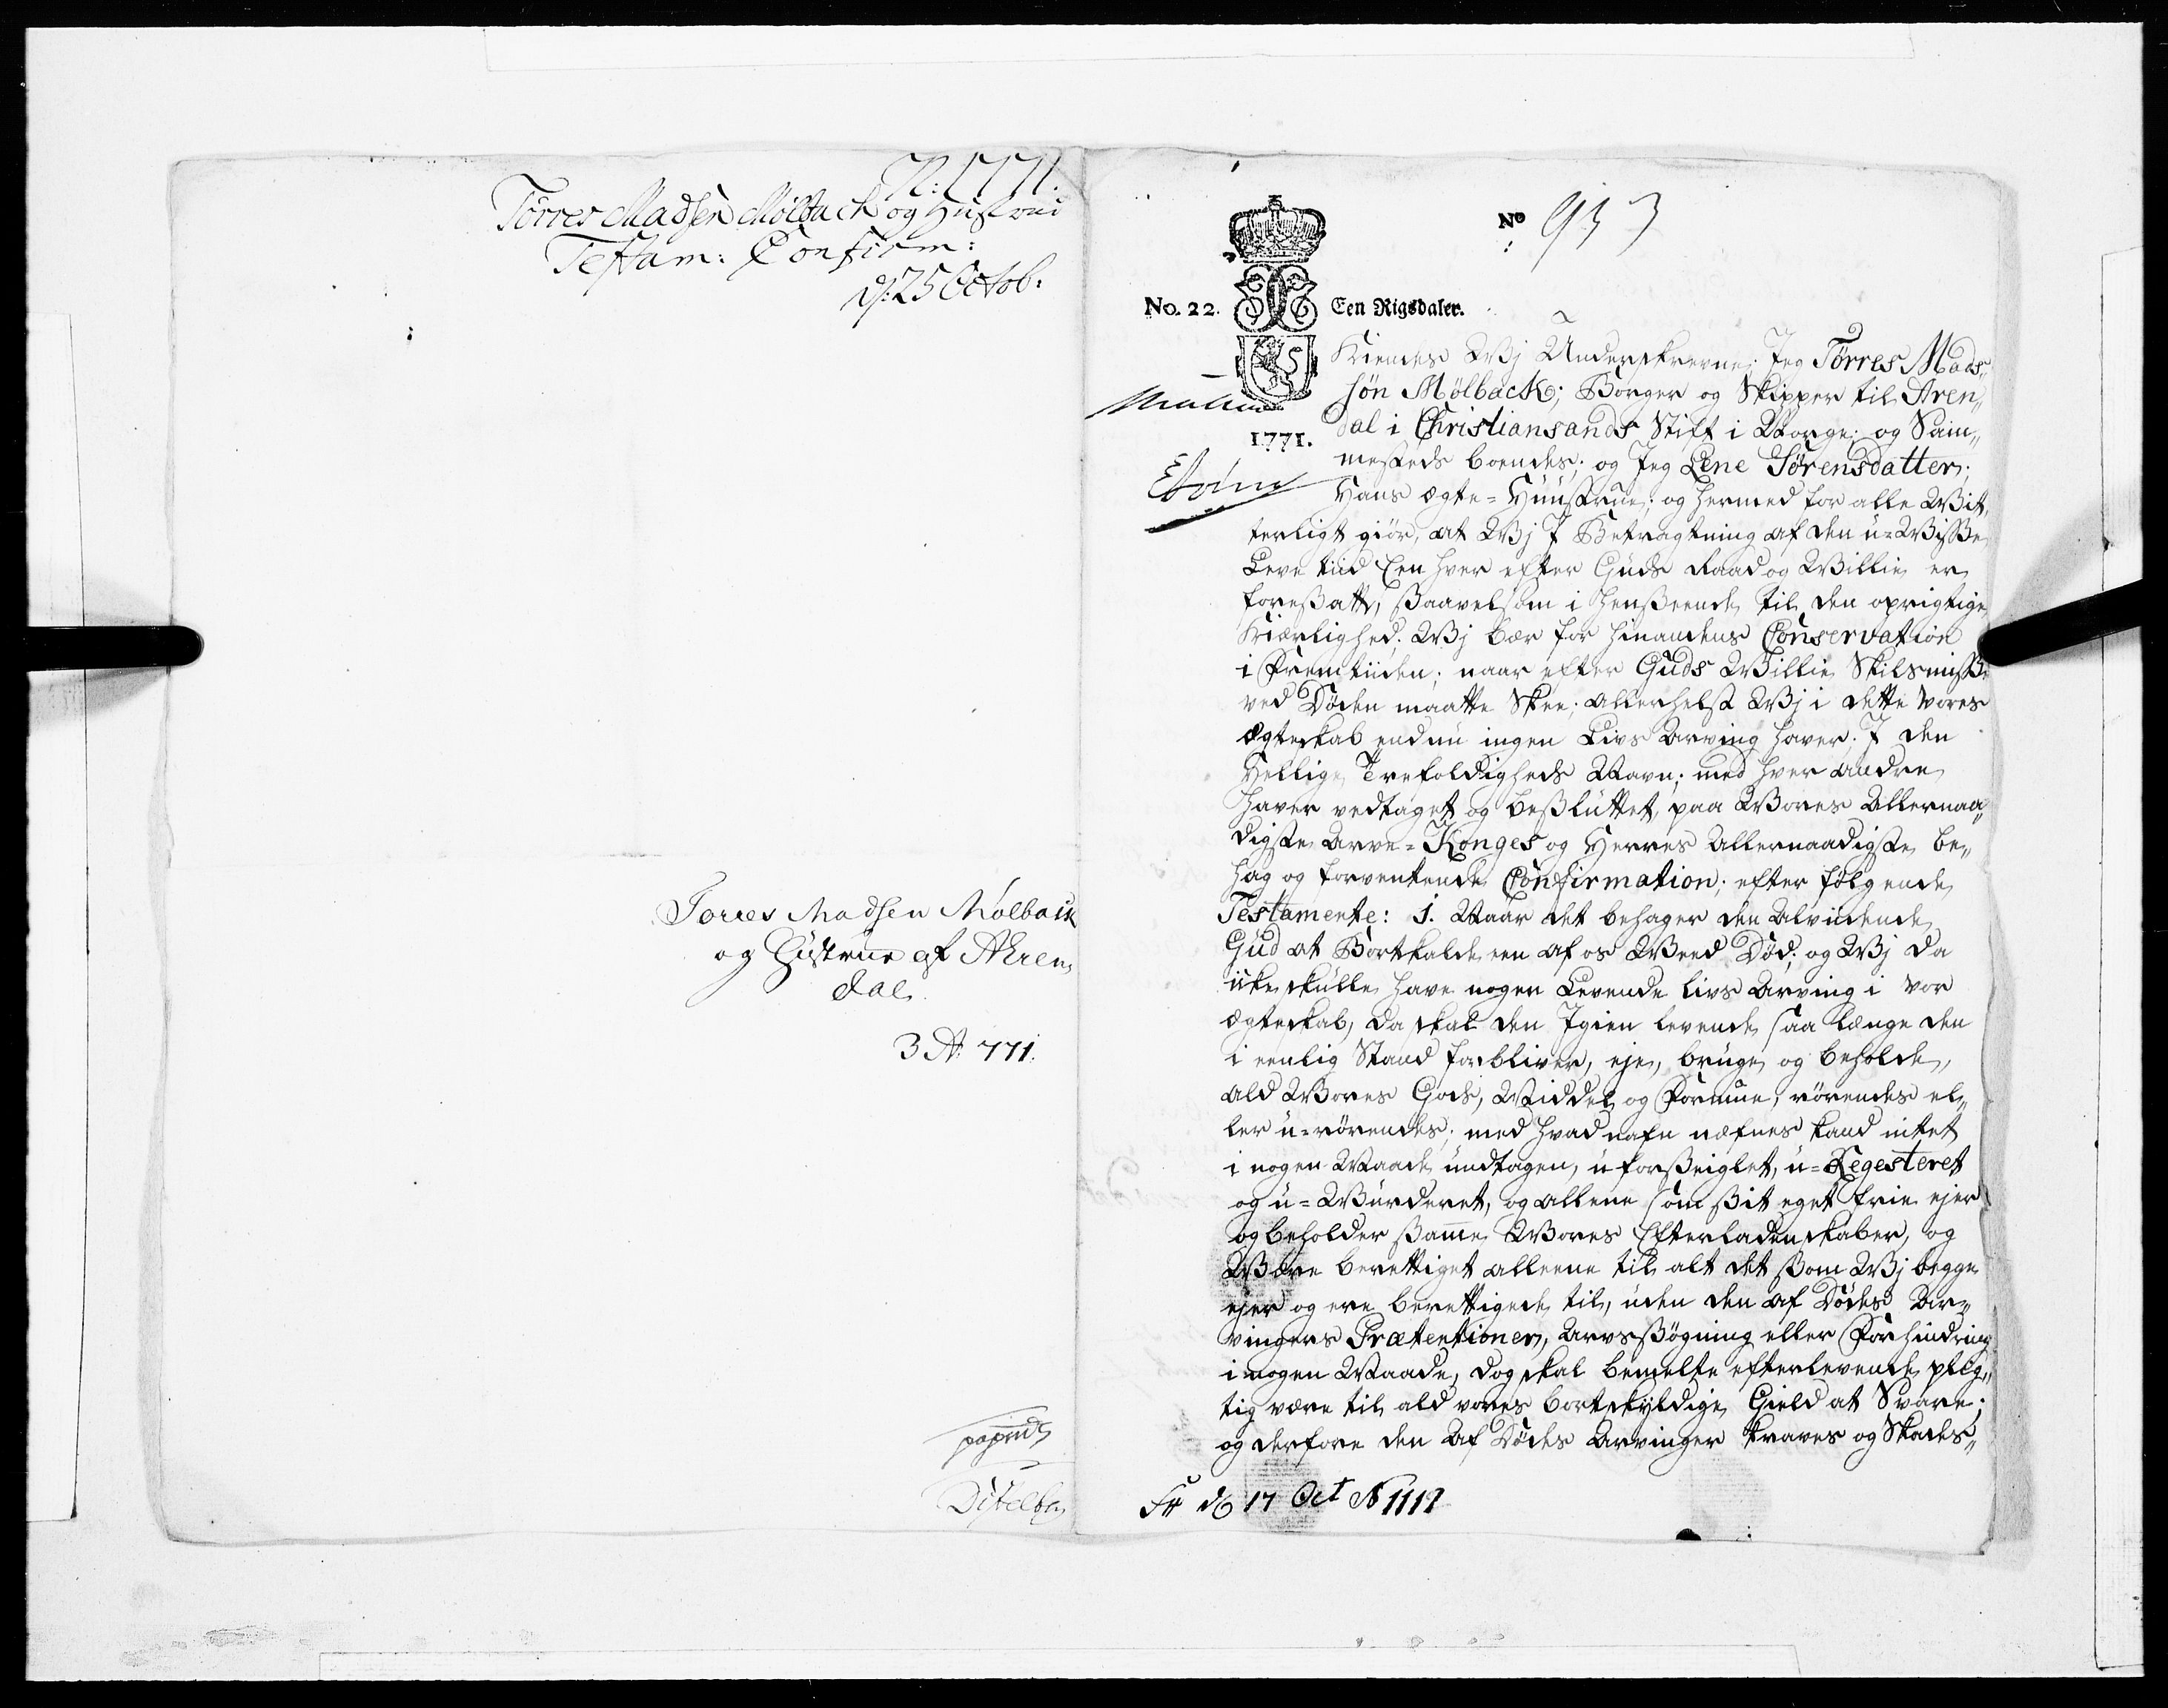 N: 1771.
Törres Madsen Mölback og Hustrue
Testam: Confirm:
d: 25 Octob:
Torres Madsen Mölback
og Hüstrue af Aren
dal
3 A: 771.
No 933
No. 22. Een Rigsdaler.
1771.
Kiendes Wij Underskrevne; Jeg Törres Mads„
søn Mölback; Borger og Skipper til Aren„
dal i Christiansands Stift i Norge; og Sam„
mesteds boendes; og Jeg Lene Sørensdatter;
Hans ægte-Huustrue; og hermed for alle Wit„
terligt giör, at Wij J Betragtning af den u-Wisse
Leve tiid Een hver efter Guds Raad og Willie er
foresatt, saavelsom i henseende til den oprigtige
Kiærlighed; Wij bær for hinandens Conservation
i Fremtiiden; naar efter Guds Willie Skilsmisse
ved Døden maatte Skee; allerhelst Wij i dette vores
Ægteskab endnu ingen Livs Arving haver. J den
Hellige Trefoldigheds Navn; med hver andre
haver vedtaget og besluttet, paa Wores Allernaa„
digste Arve-Konges og Herres Allernaadigste be„
hag og forventende Confirmation; efter følgende
Testamente: 1. Naar det behager den Alviidende
Gud at Bortkalde een af os Weed Død; og Wij da
icke skulle have nogen Levende livs Arving i vor
ægteskab, da skal den Jgien levende saa længe den
i eenlig Stand forbliver, eje, bruge og beholde,
ald Wores Gods, Middel og Formue, rørendes el„
ler u-rørendes; med hvad nafn næfnes kand intet
i nogen Maade undtagen, u forseiglet, u-Regesteret
og u-Wurderet, og allene som sit eget frie ejer
og beholder samme Wores Efterladenskaber, og
Wære berettiget alleene til alt det som Wij begge
ejer og ere berettigede til, uden den af Dødes Ar„
vingers Prætentioner, Arvssøgning eller Forhindring
i nogen Maade, dog skal bemelte efterlevende plig„
tig være til ald vores bortskyldige Gield at Svare;
og derfore den Af Dødes Arvinger kraves og Skades„
17 Oct N 1112